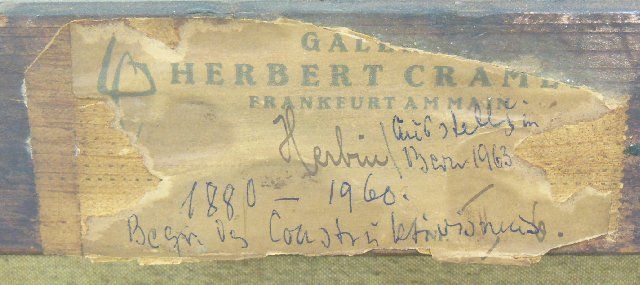 GALE
HERBERT CRAME
FRANKFURT AM MAIN
Herbin/ Ausstellg in
Bern 1963
1880 - 1960.
Begr. des Constructivismus.